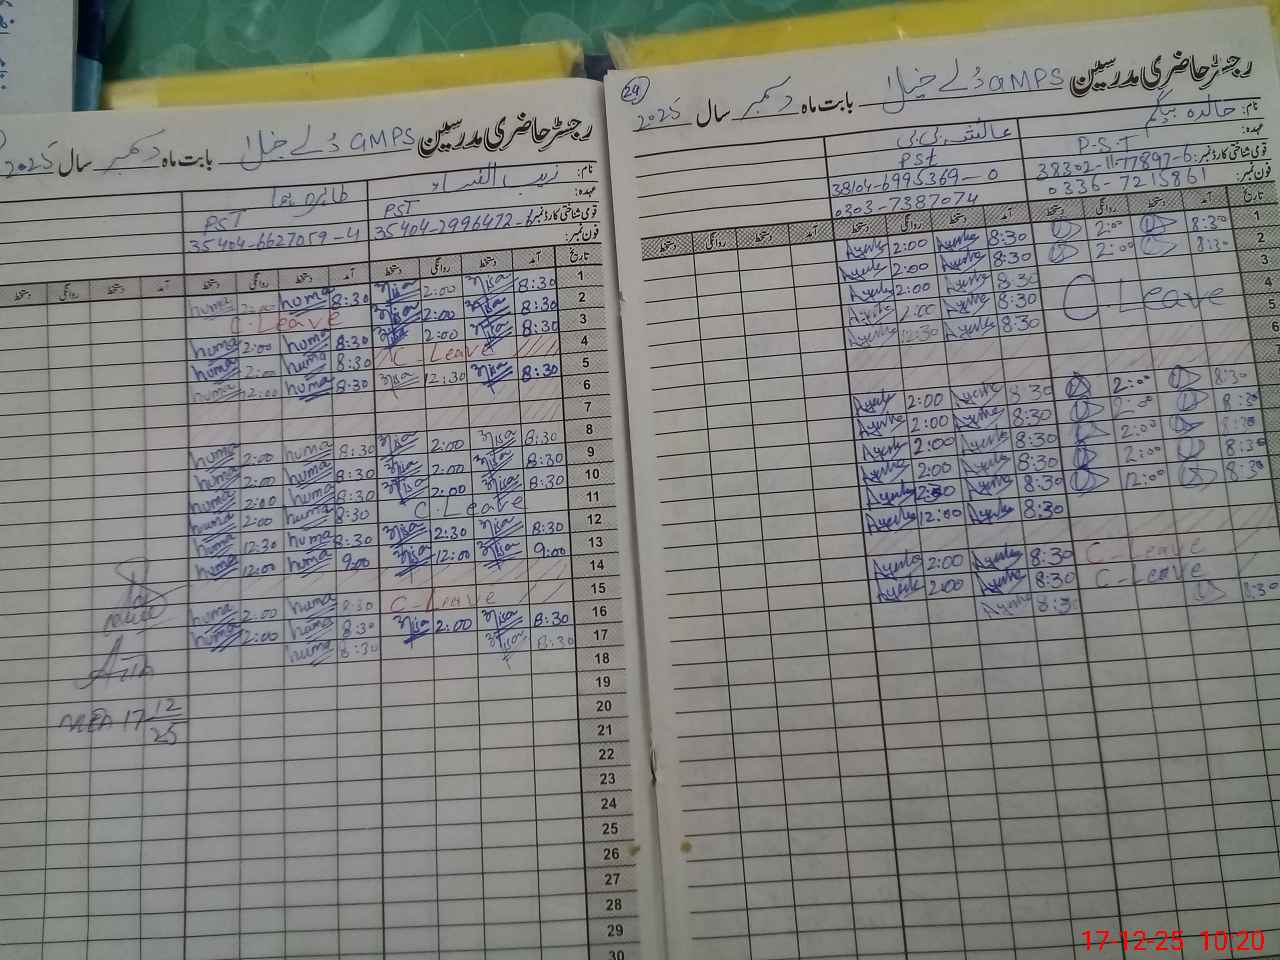 29
رجسٹر حاضری مدرسین GMPS دُلے خیلا بابت ماہ دسمبر سال 2025
نام: خالدہ بیگم عائشہ بی بی
عہدہ: P.S.T PST
قومی شناختی کارڈ نمبر: 38302-1177897-6 38104-6995369-0
فون نمبر: 0336-7215861 0303-7387074
تاریخ آمد دستخط روانگی دستخط آمد دستخط روانگی دستخط آمد دستخط روانگی دستخط
1 8:30 2:00 8:30 Ayesha 2:00 Ayesha
2 8:30 2:00 8:30 Ayesha 2:00 Ayesha
3 8:30 Ayesha 2:00 Ayesha
4 C-Leave 8:30 Ayesha 2:00 Ayesha
5 8:30 Ayesha 12:30 Ayesha
6
7
8:30 2:00 8:30 Ayesha 2:00 Ayesha
8:30 2:00 8:30 Ayesha 2:00 Ayesha
8:30 2:00 8:30 Ayesha 2:00 Ayesha
8:30 2:00 8:30 Ayesha 2:00 Ayesha
8:30 12:00 8:30 Ayesha 2:30 Ayesha
8:30 Ayesha 12:00 Ayesha
C-Leave 8:30 Ayesha 2:00 Ayesha
C-Leave 8:30 Ayesha 2:00 Ayesha
8:30 8:30 Ayesha
رجسٹر حاضری مدرسین GMPS دُلے خیلا بابت ماہ دسمبر سال 2025
نام: زیب النساء طاہرہ ہما
عہدہ: PST PST
قومی شناختی کارڈ نمبر: 35404-2996472-6 35404-6627059-4
فون نمبر:
تاریخ آمد دستخط روانگی دستخط آمد دستخط روانگی دستخط آمد دستخط روانگی دستخط
1 8:30 Nisa 2:00 Nisa 8:30 huma 2:00 huma
2 8:30 Nisa 2:00 Nisa C.Leave
3 8:30 Nisa 2:00 Nisa 8:30 huma 2:00 huma
4 C-Leave 8:30 huma 2:00 huma
5 8:30 Nisa 12:30 Nisa 8:30 huma 12:00 huma
6
7
8 8:30 Nisa 2:00 Nisa 8:30 huma 2:00 huma
9 8:30 Nisa 2:00 Nisa 8:30 huma 2:00 huma
10 8:30 Nisa 2:00 Nisa 8:30 huma 2:00 huma
11 C.Leave 8:30 huma 2:00 huma
12 8:30 Nisa 2:30 Nisa 8:30 huma 12:30 huma
13 9:00 Nisa 12:00 Nisa 9:00 huma 12:00 huma
14
15 C-Leave 8:30 huma 2:00 huma
16 8:30 Nisa 2:00 Nisa 8:30 huma 2:00 huma
17 8:30 Nisa 8:30 huma
18
19
20
MEA 17 12/25
21
22
23
24
25
26
27
28
29
30
17-12-25 10:20